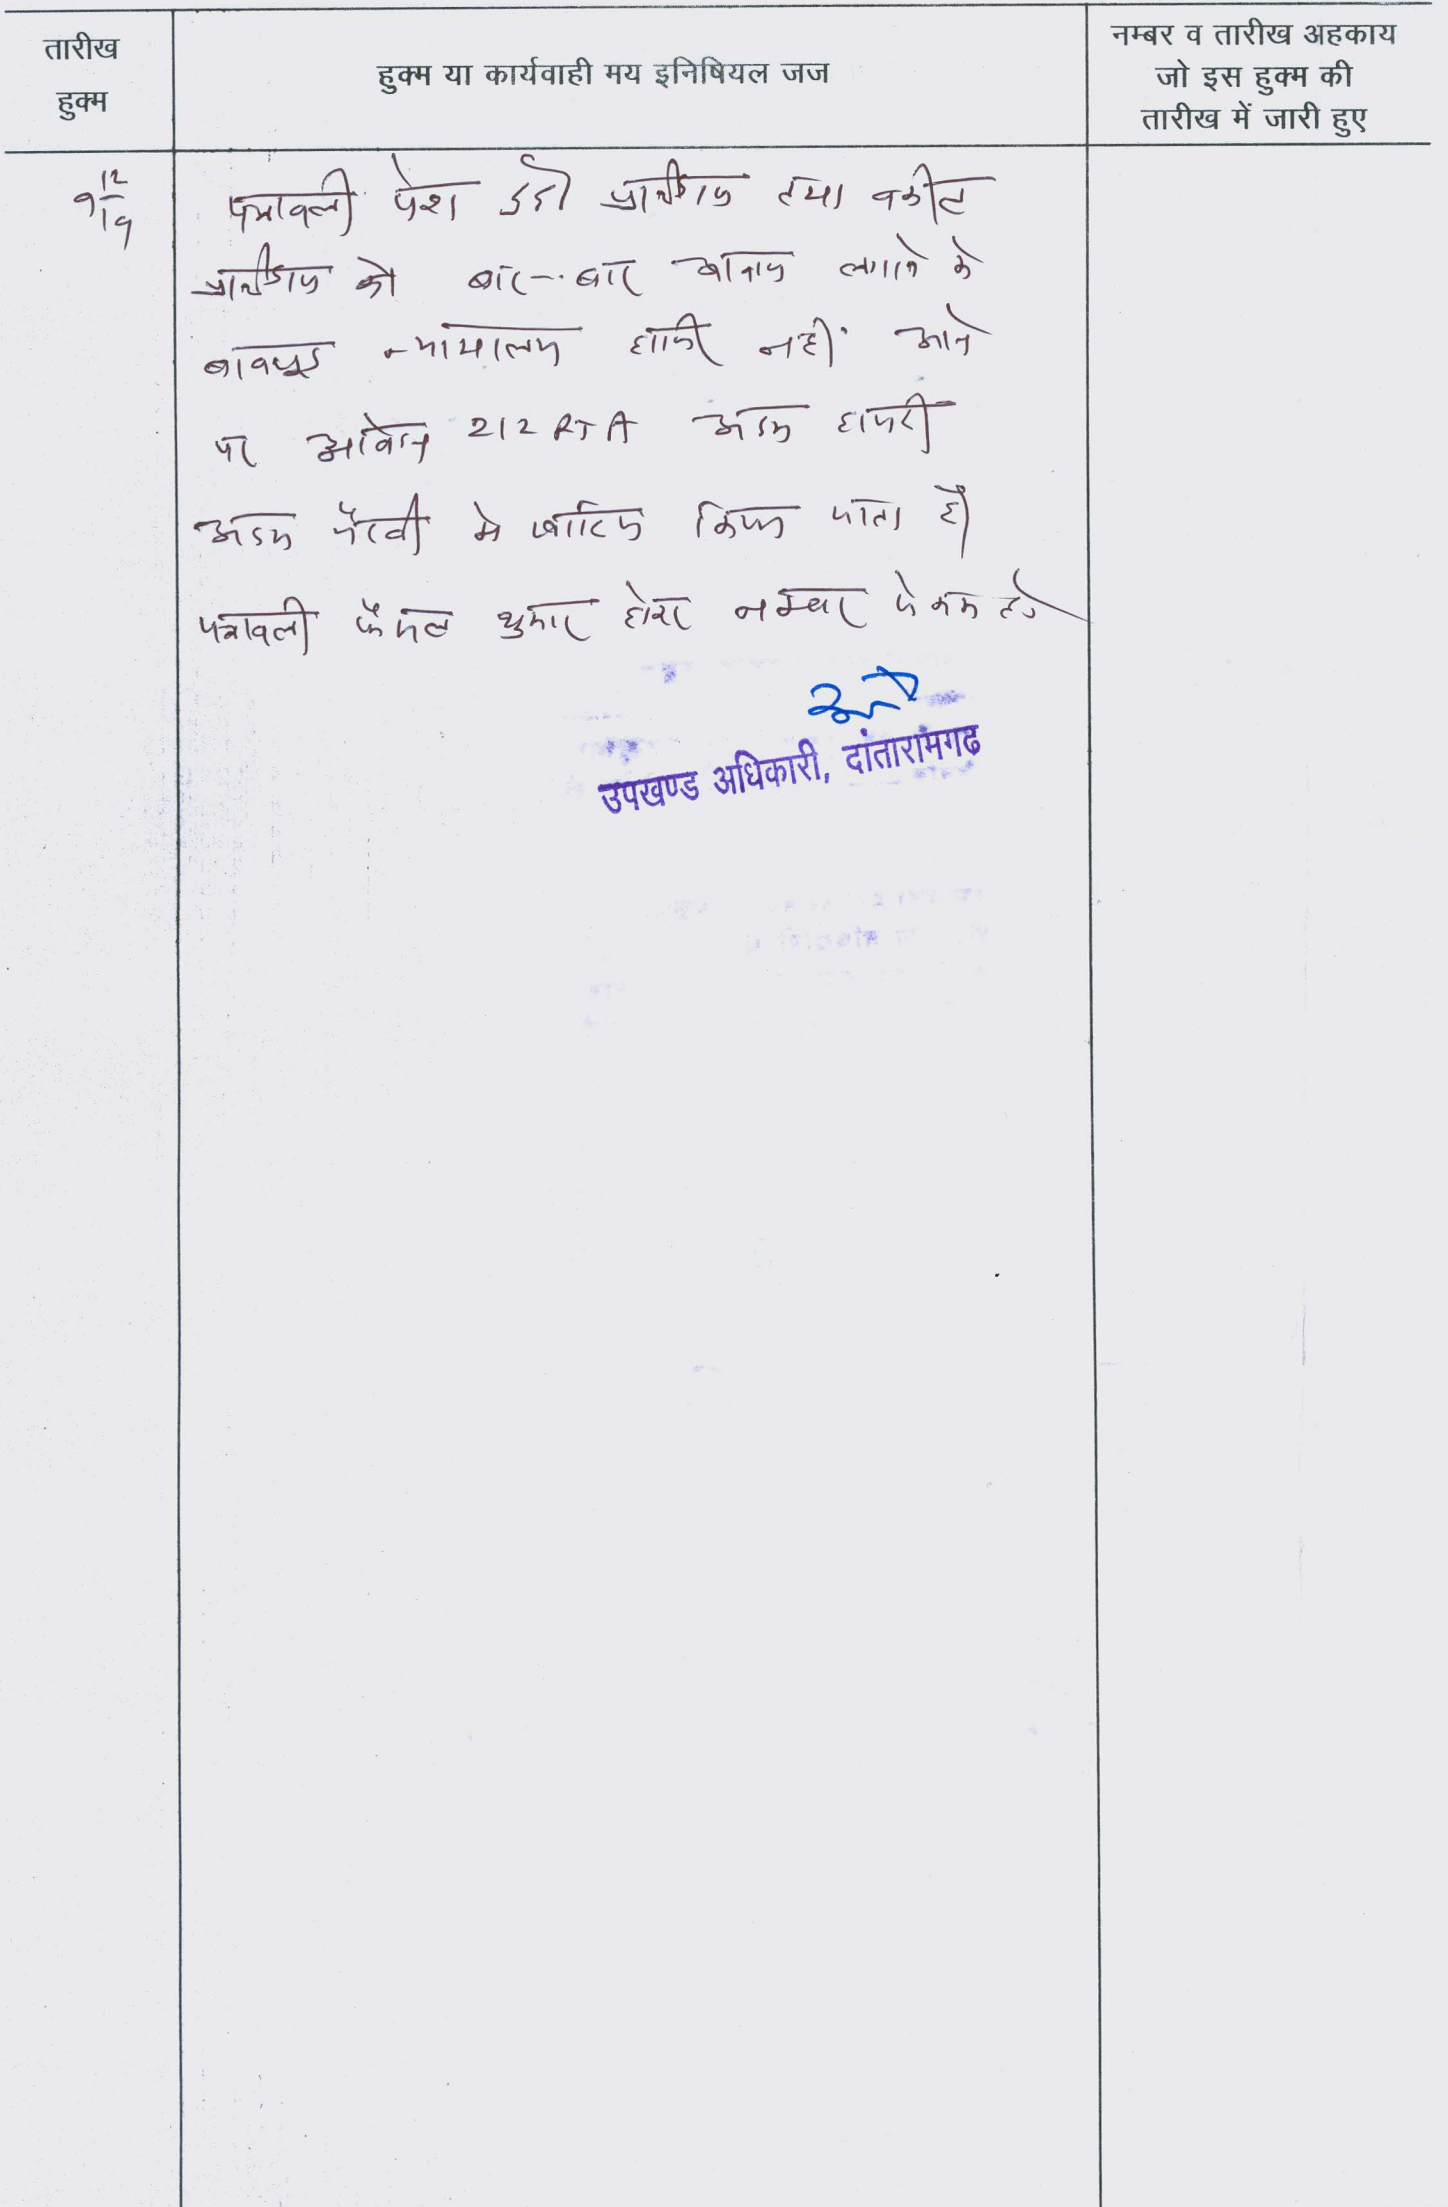 तारीख
हुक्म
हुक्म या कार्यवाही मय इनिषियल जज
नम्बर व तारीख अहकाय
जो इस हुक्म की
तारीख में जारी हुए
9 12/19
पत्रावली पेश हुई। प्रार्थीगण तथा वकील
प्रार्थीगण को बार-बार आवाज लगाने के
बावजूद न्यायालय हाजिर नहीं आने
पर आवेदन 212 RTA अदम हाजरी
अदम पैरवी मे खारिज किया जाता है।
पत्रावली फैसल शुमार होकर नम्बर से कम हो।
उपखण्ड अधिकारी, दांतारामगढ